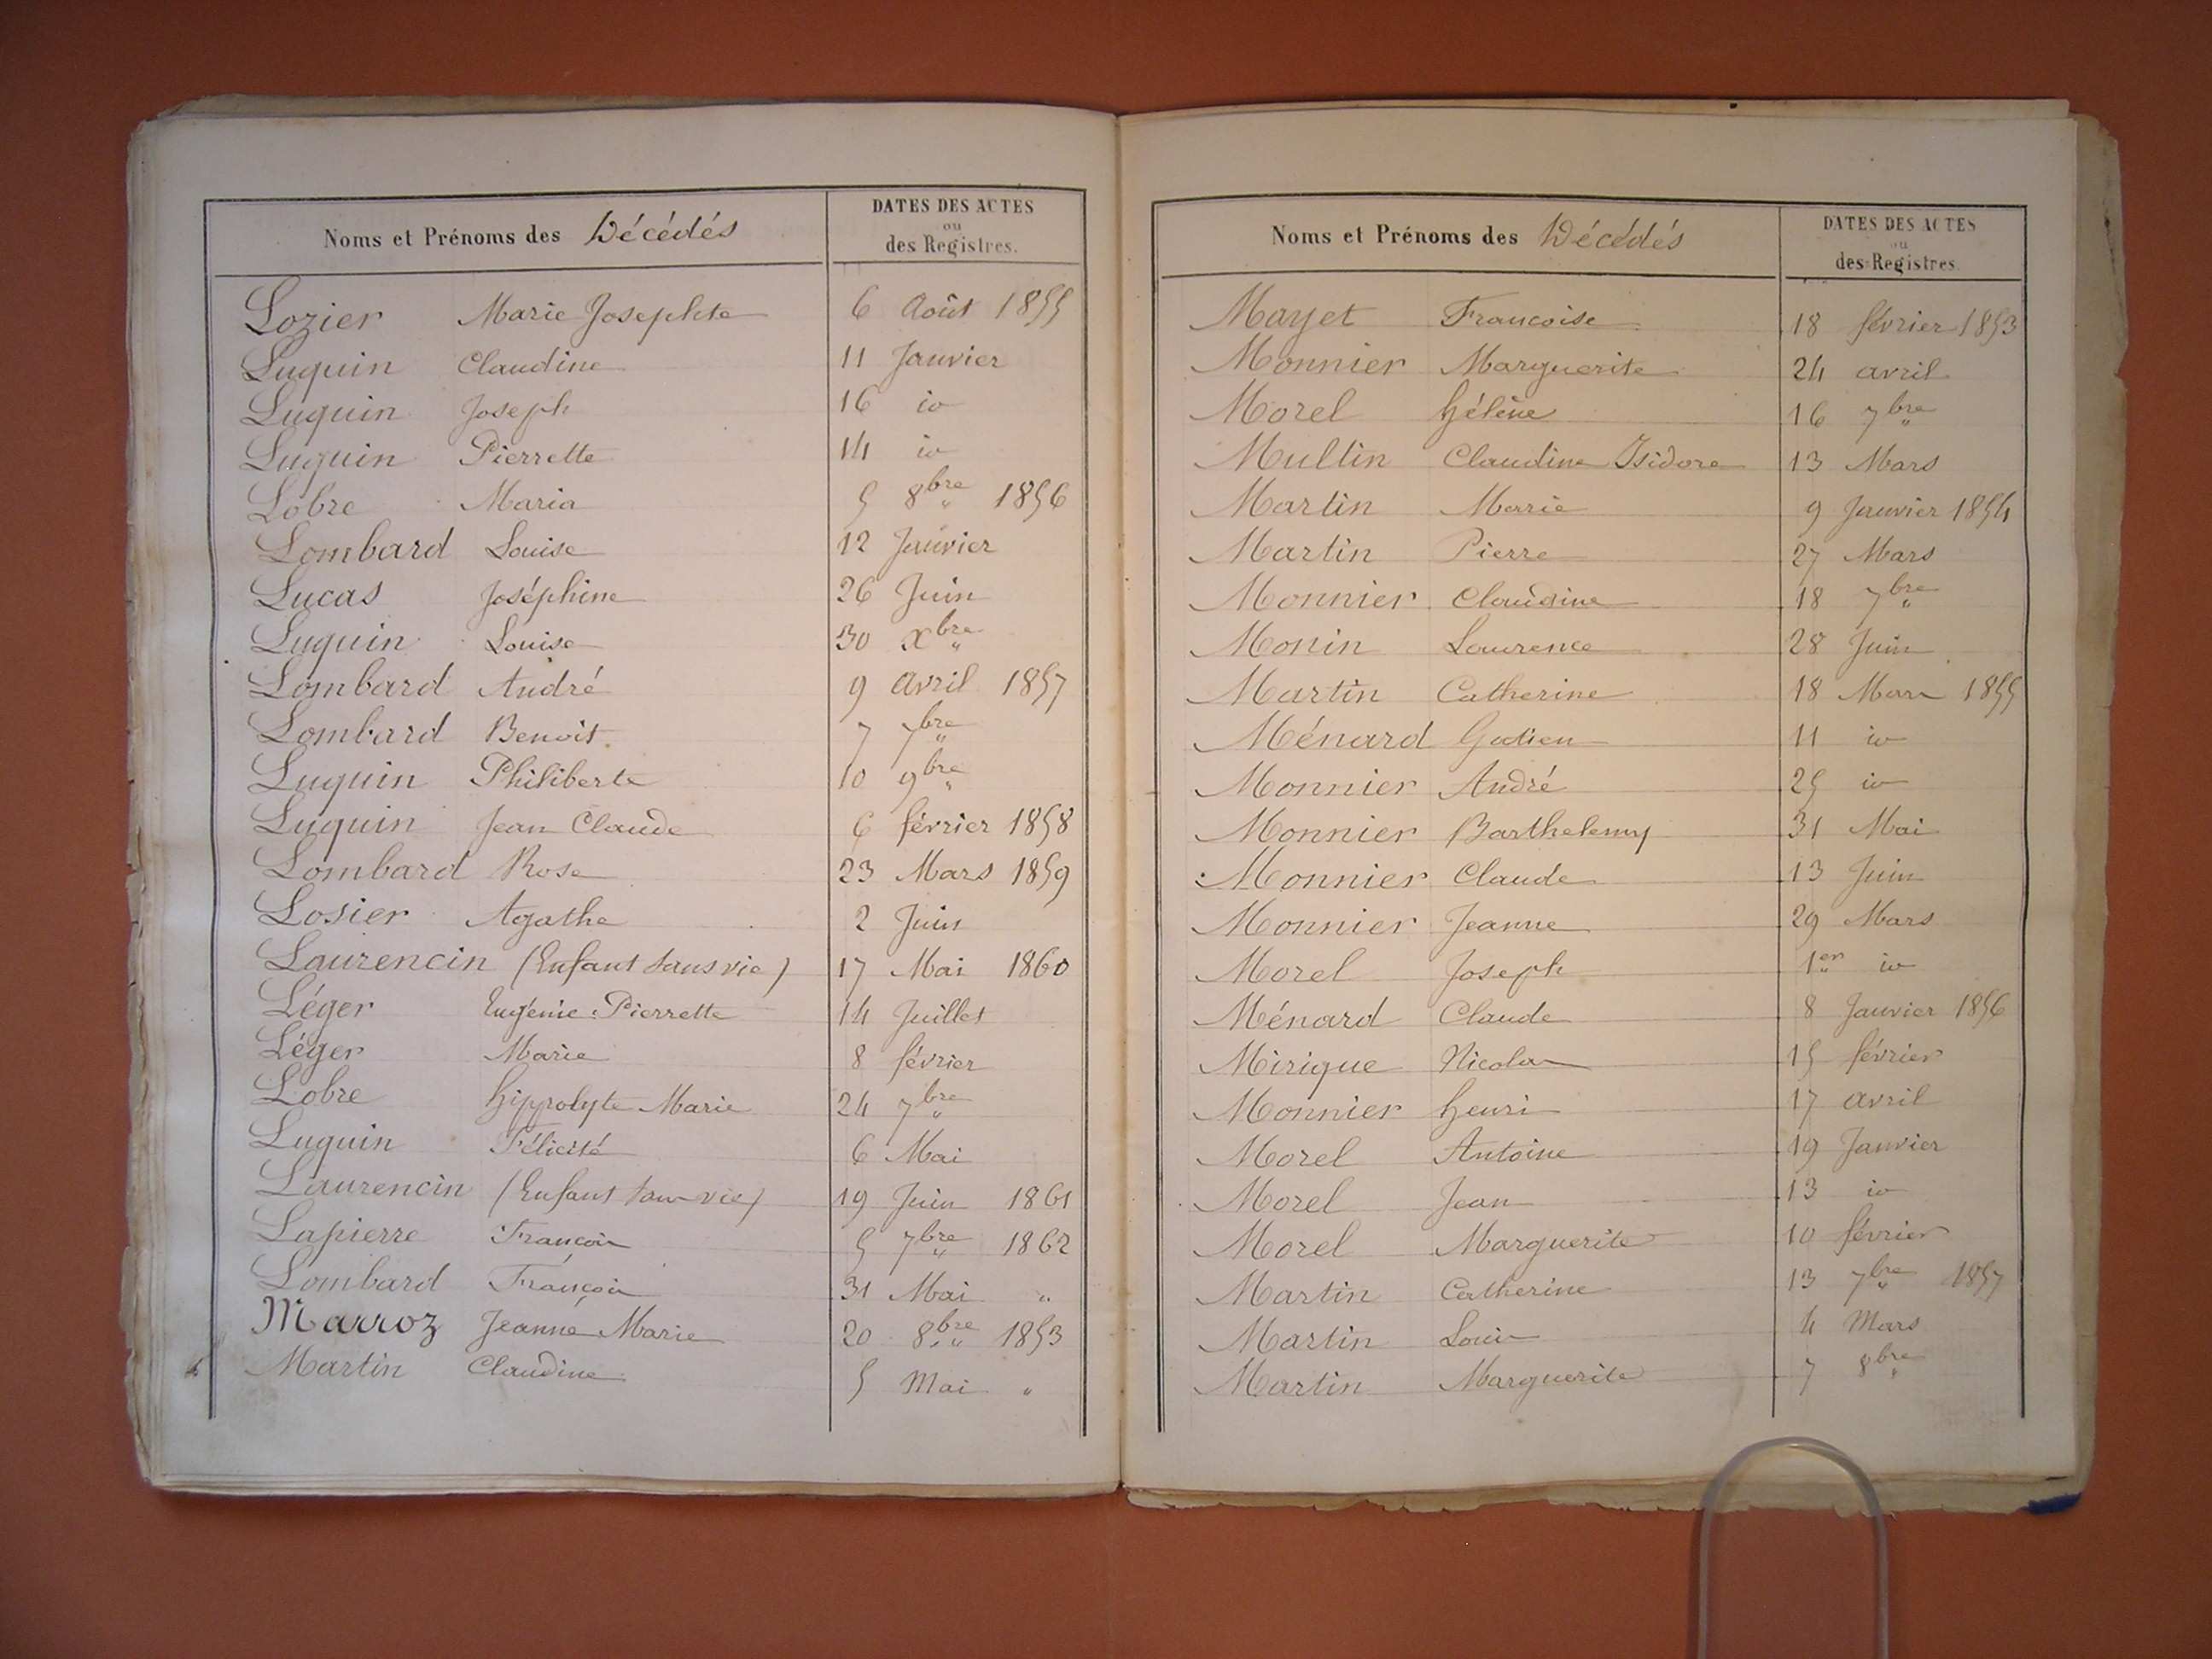 Noms et Prénoms des Décédés
DATES DES ACTES
ou
des Registres.
Lozier Marie Josephte 6 Août 1855
Luquin Claudine 11 Janvier
Luquin Joseph 16 io
Luquin Pierrette 14 io
Lobre Maria 5 8bre 1856
Lombard Louise 12 Janvier
Lucas Joséphine 26 Juin
Luquin Louise 30 Xbre
Lombard André 9 Avril 1857
Lombard Benoit 7 7bre
Luquin Philiberte 10 9bre
Luquin Jean Claude 6 février 1858
Lombard Rose 23 Mars 1859
Losier Agathe 2 Juin
Laurencin (Enfant sans vie) 17 Mai 1860
Léger Eugénie Pierrette 14 Juillet
Léger Marie 8 février
Lobre hippolyte Marie 24 7bre
Luquin Félicité 6 Mai
Laurencin (Enfant sans vie) 19 Juin 1861
Lapierre François 5 7bre 1862
Lombard François 31 Mai "
Marroz Jeanne Marie 20 8bre 1853
Martin Claudine 5 Mai "
Noms et Prénoms des Décédés
DATES DES ACTES
ou
des Registres
Mayet Francoise 18 février 1853
Monnier Marguerite 24 avril
Morel hélène 16 7bre
Multin Claudine Isidore 13 Mars
Martin Marie 9 Janvier 1854
Martin Pierre 27 Mars
Monnier Claudine 18 7bre
Monin Laurence 28 Juin
Martin Catherine 18 Mars 1855
Ménard Gatien 11 io
Monnier André 25 io
Monnier Barthelemy 31 Mai
Monnier Claude 13 Juin
Monnier Jeanne 29 Mars
Morel Joseph 1er io
Ménard Claude 8 Janvier 1856
Mirique Nicolas 15 février
Monnier henri 17 avril
Morel Antoine 19 Janvier
Morel Jean 13 io
Morel Marguerite 10 février
Martin Catherine 13 7bre 1857
Martin Louis 4 Mars
Martin Marguerite 7 8bre